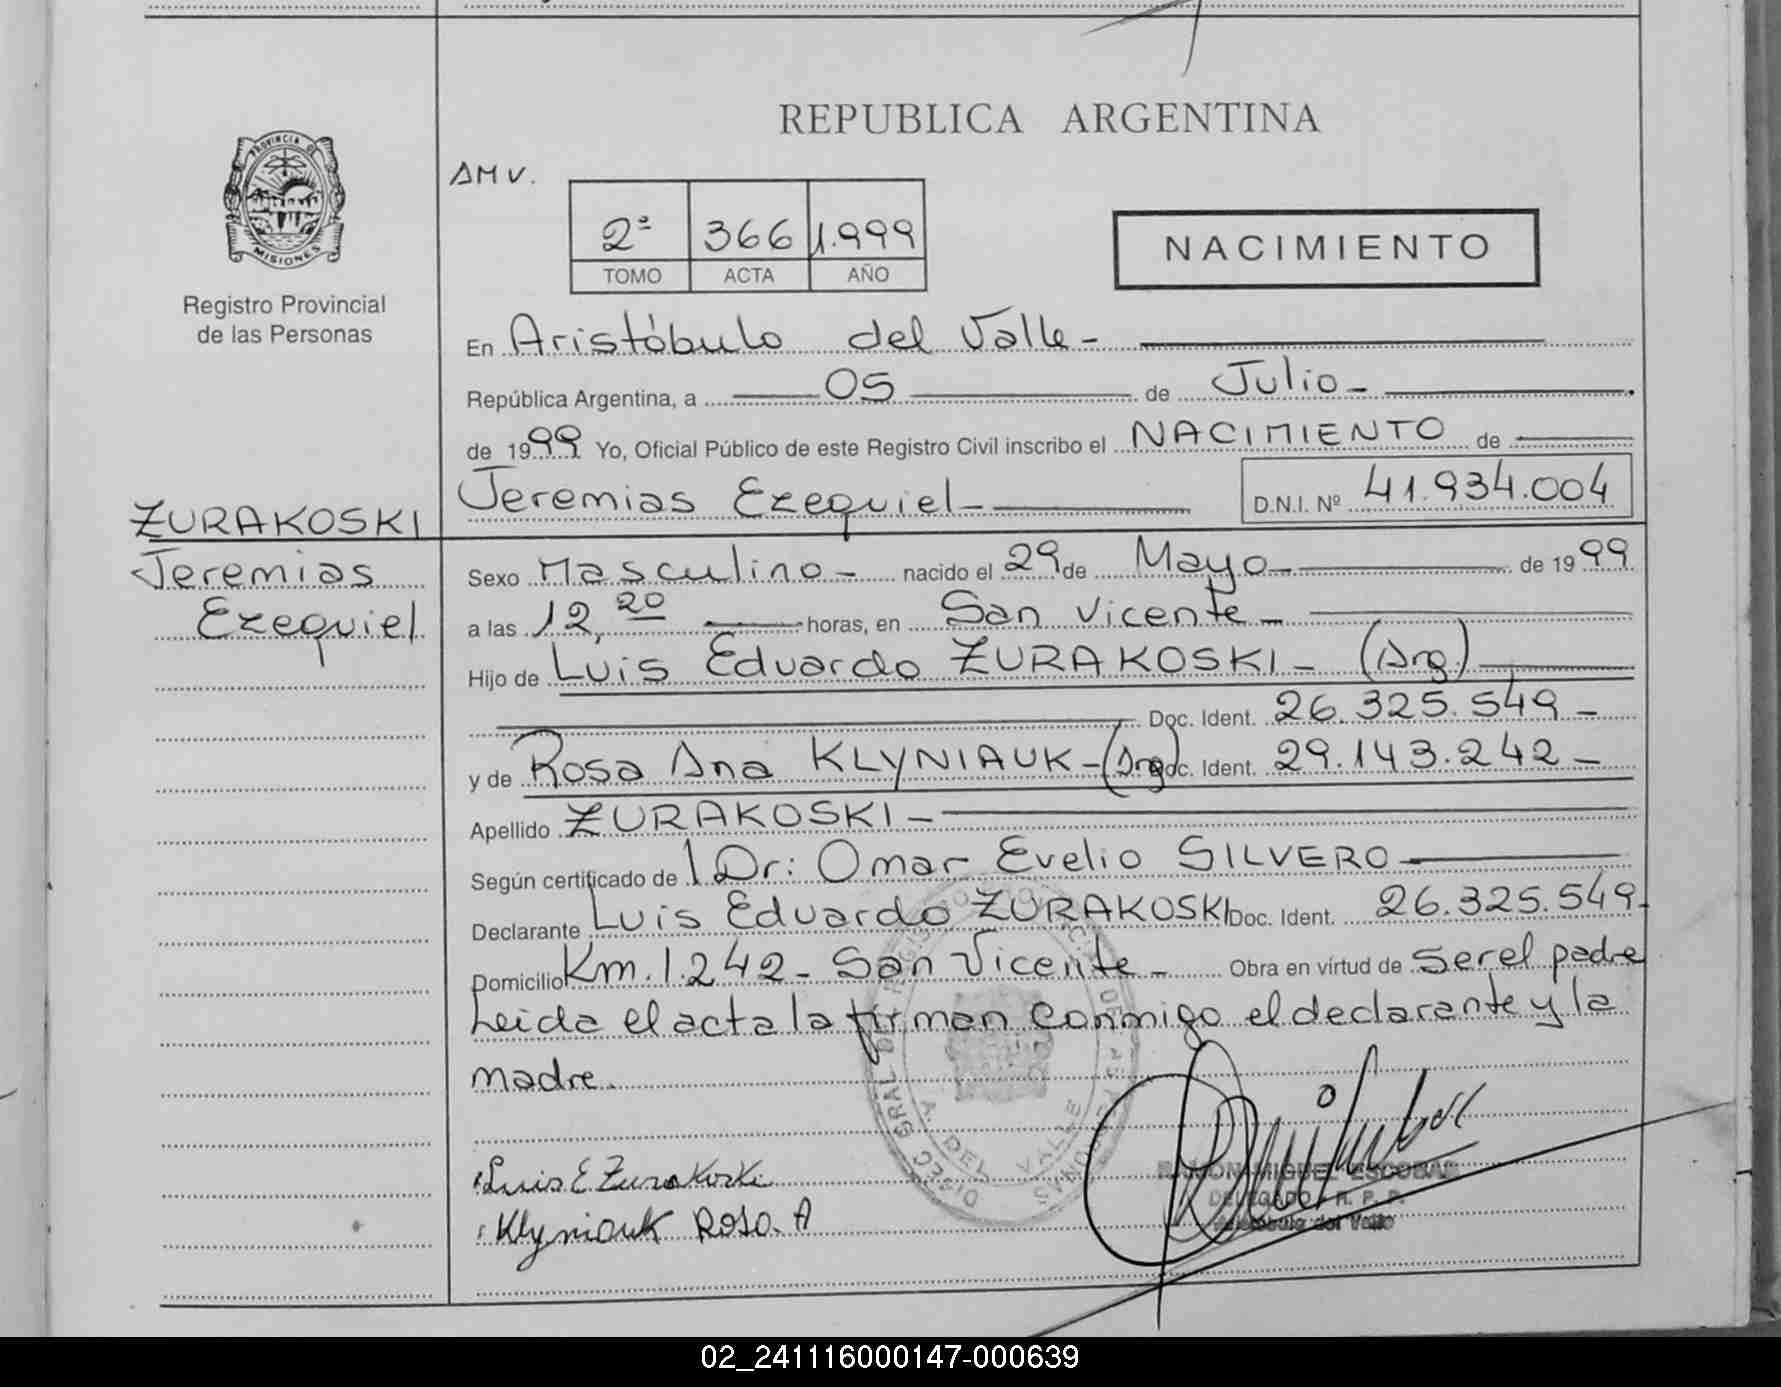 REPUBLICA ARGENTINA
PROVINCIA DE
MISIONES
Registro Provincial
de las Personas
AMV.
2º 366 1.999
TOMO ACTA AÑO
NACIMIENTO
En Aristóbulo del Valle -
República Argentina, a 05 de Julio -
de 1999 Yo, Oficial Público de este Registro Civil inscribo el NACIMIENTO de
Jeremias Ezequiel - D.N.I. Nº 41.934.004
ZURAKOSKI
Jeremias
Ezequiel
Sexo Masculino - nacido el 29 de Mayo - de 1999
a las 12,20 horas, en San Vicente -
Hijo de Luis Eduardo ZURAKOSKI - (Arg)
Doc. Ident. 26.325.549 -
y de Rosa Ana KLYNIAUK - (Arg) Doc. Ident. 29.143.242 -
Apellido ZURAKOSKI -
Según certificado de 1 Dr: Omar Evelio SILVERO
Declarante Luis Eduardo ZURAKOSKI Doc. Ident. 26.325.549 -
Domicilio Km. 1.242 - San Vicente - Obra en vírtud de ser el padre
Leida el acta la firman conmigo el declarante y la
madre.
Luis E Zurakoski
Klyniauk Rosa. A
A. DEL VALLE
RAMON MIGUEL ESCOBAR
DELEGADO R. P. P.
Aristobulo del Valle
02_241116000147-000639